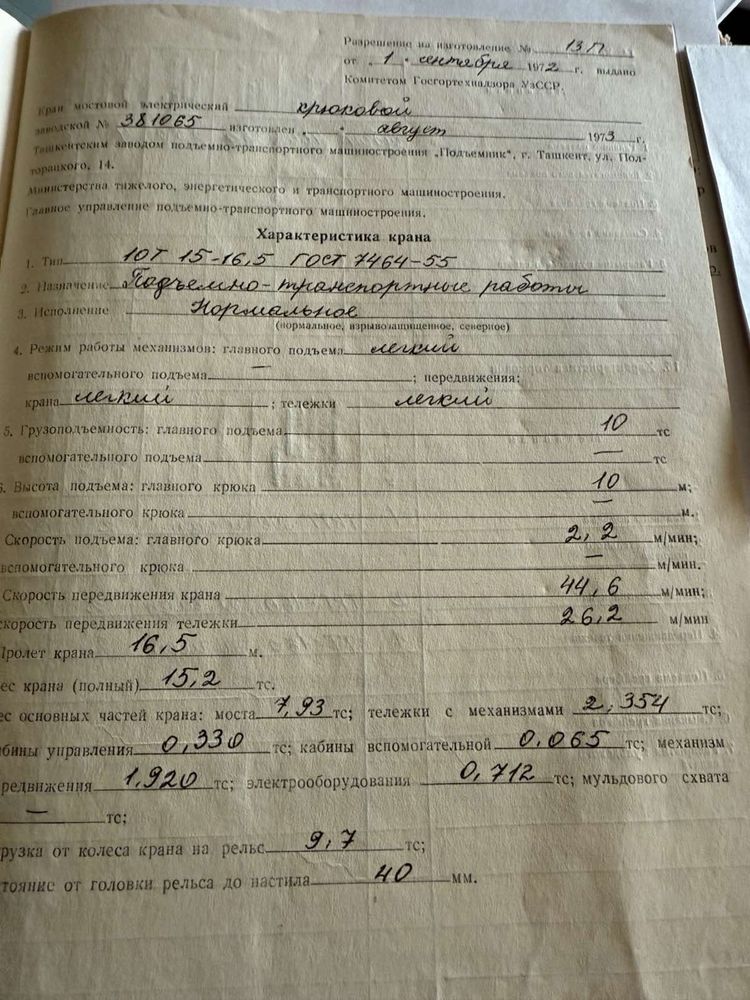 Разрешение на изготовление № 13 П
от „ 1 " сентября 1972 г. выдано
Комитетом Госгортехнадзора УзССР.
Кран мостовой электрический крюковой
заводской № 381065 изготовлен „ " август 1973 г.
Ташкентским заводом подъемно-транспортного машиностроения „Подъемник", г. Ташкент, ул. Пол-
торацкого, 14.
Министерства тяжелого, энергетического и транспортного машиностроения.
Главное управление подъемно-транспортного машиностроения.
Характеристика крана
1. Тип 10Т 15-16,5 ГОСТ 7464-55
2. Назначение Подъемно-транспортные работы
3. Исполнение Нормальное
(нормальное, взрывозащищенное, северное)
4. Режим работы механизмов: главного подъема легкий
вспомогательного подъема — ; передвижения:
крана легкий ; тележки легкий
5. Грузоподъемность: главного подъема 10 тс
вспомогательного подъема — тс
6. Высота подъема: главного крюка 10 м;
вспомогательного крюка — м.
Скорость подъема: главного крюка 2,2 м/мин;
вспомогательного крюка — м/мин.
Скорость передвижения крана 44,6 м/мин;
скорость передвижения тележки 26,2 м/мин
Пролет крана 16,5 м.
ес крана (полный) 15,2 тс.
ес основных частей крана: моста 7,93 тс; тележки с механизмами 2,354 тс;
абины управления 0,330 тс; кабины вспомогательной 0.065 тс; механизм
редвижения 1,920 тс; электрооборудования 0,712 тс; мульдового схвата
— тс;
рузка от колеса крана на рельс 9,7 тс;
тояние от головки рельса до настила 40 мм.